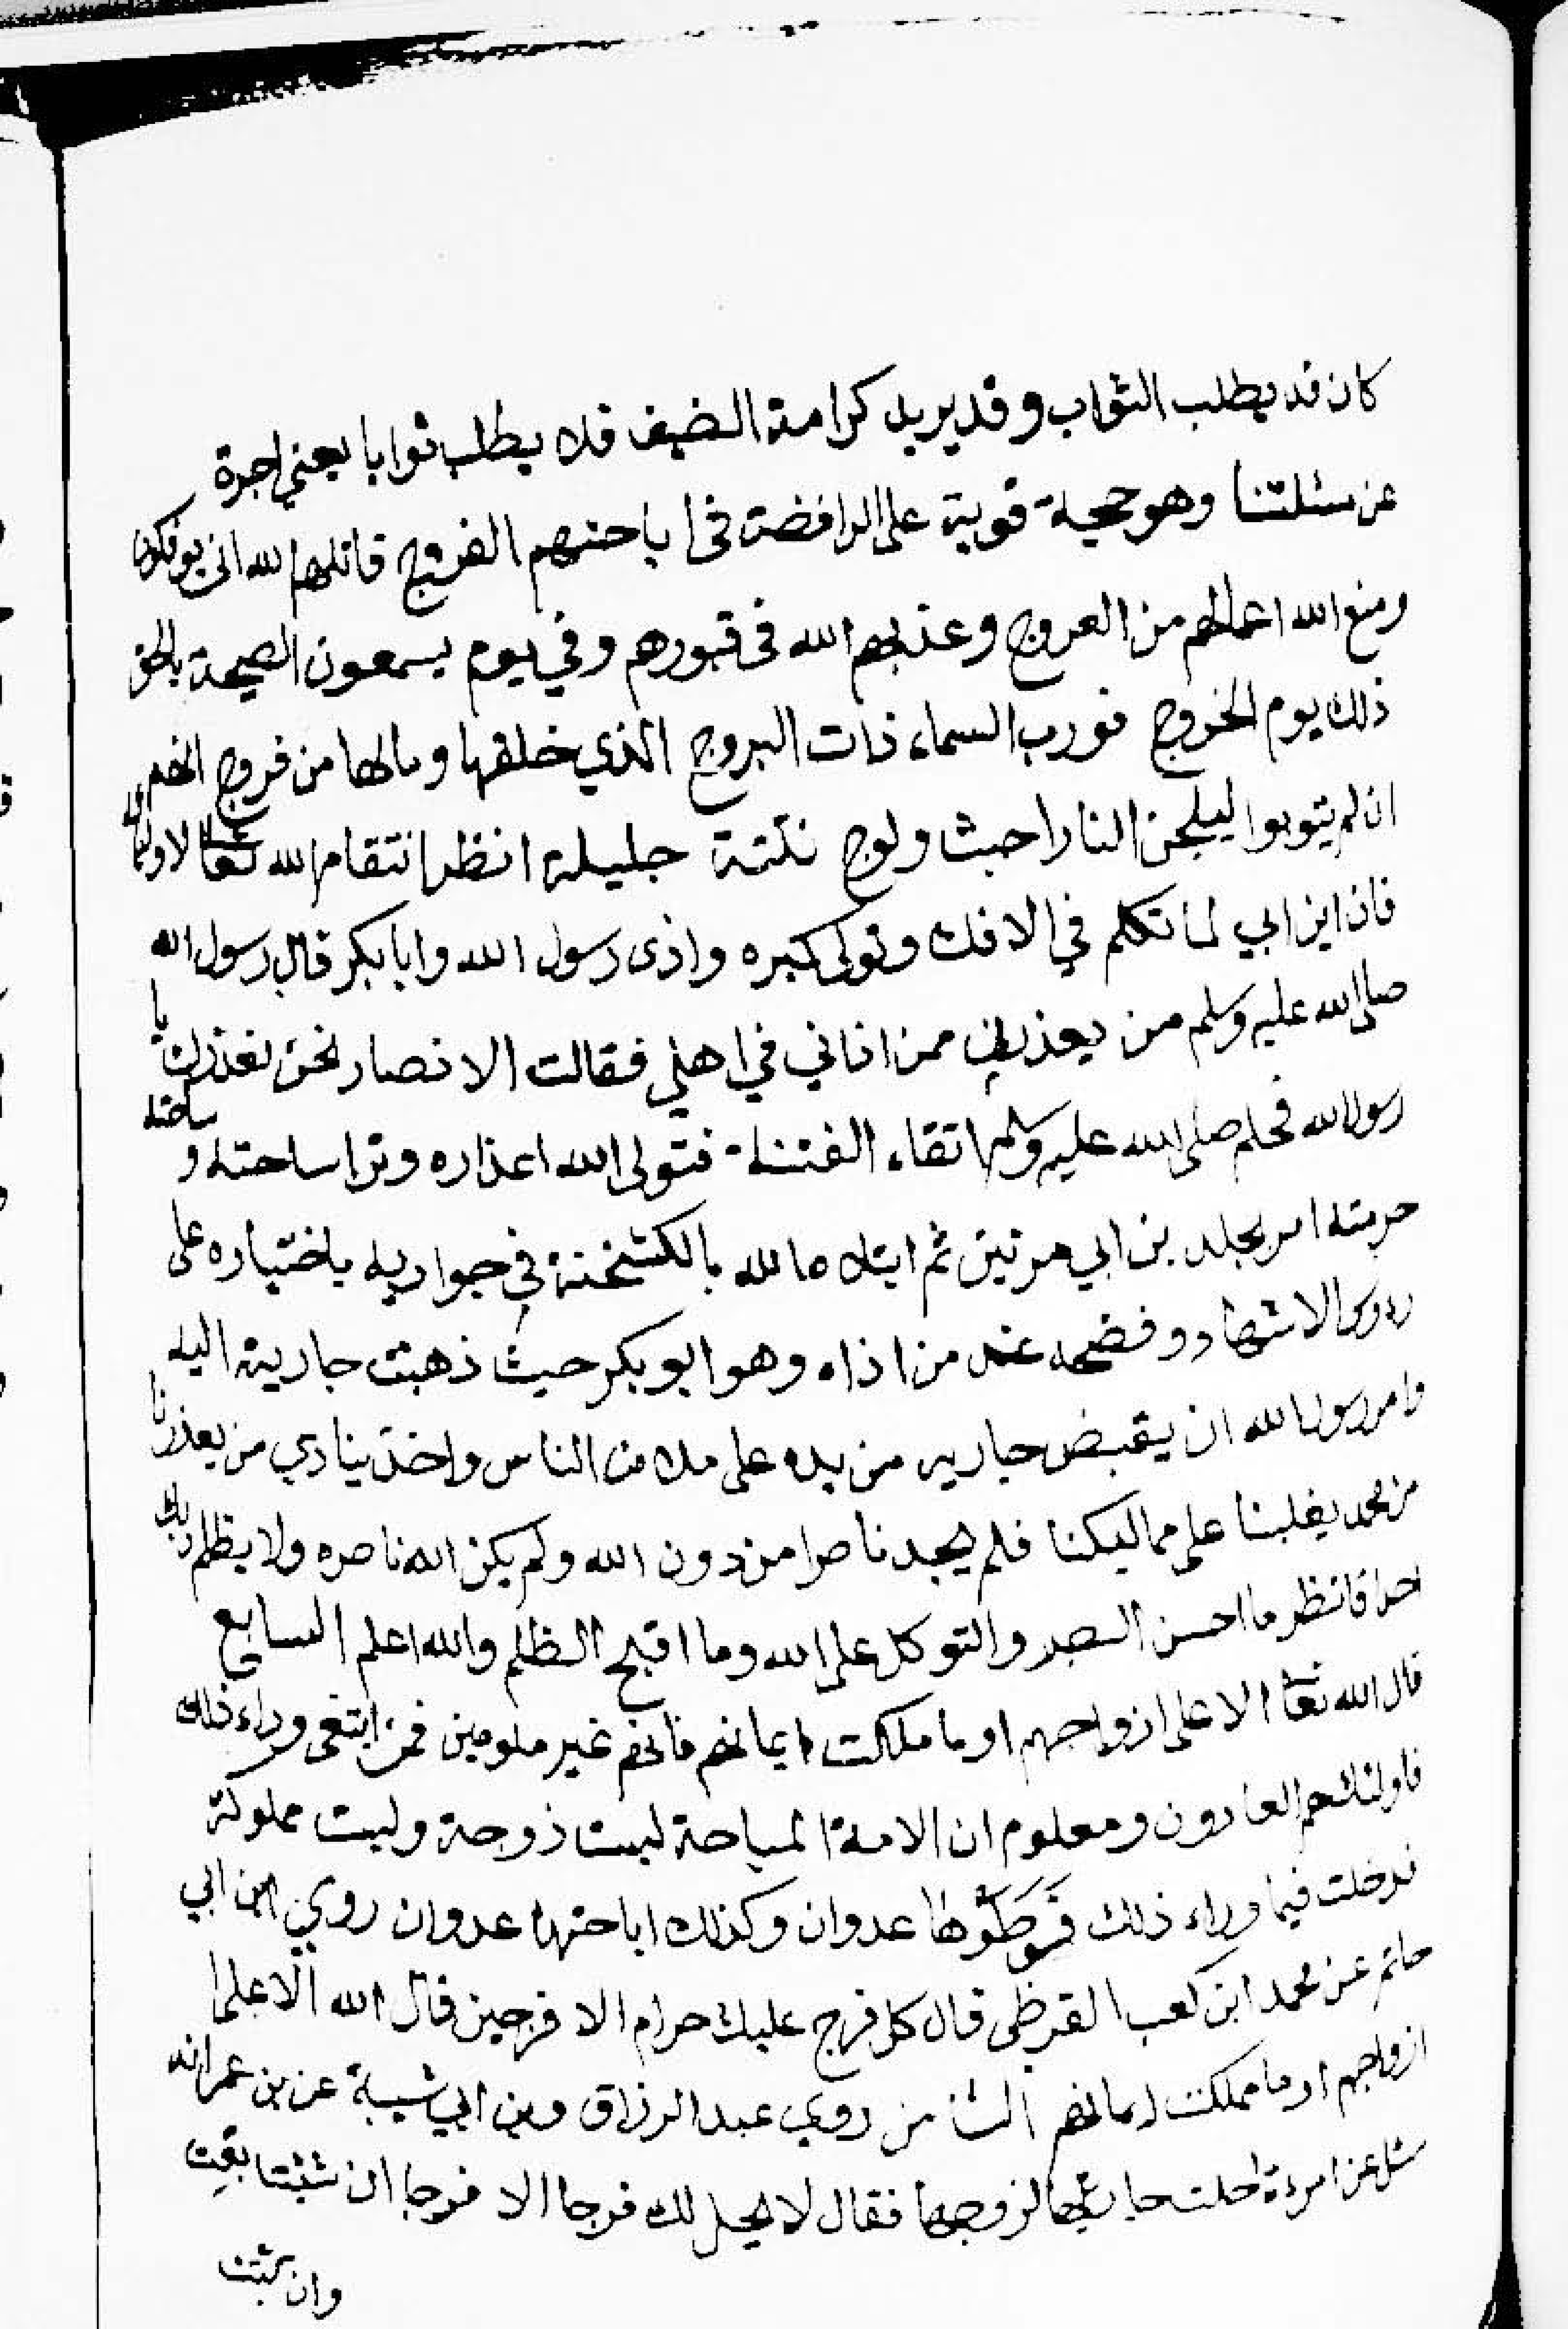 كان قد يطلب الثواب وقد يريد كرامة الضيف فلا يطلب ثوابا يعني اجرة
عن مسئلتنا وهو حجة قوية على الرافضة في اباحتهم الفروج قاتلهم الله انى يوفكون
ومنع الله اعمالهم من العروج وعذبهم الله في قبورهم وفي يوم يسمعون الصيحة بالحق
ذلك يوم الخروج فورب السماء ذات البروج الذي خلقها ومالها من فروج انهم
ان لم يتوبوا ليلجن النار اخبث ولوج نكتة جليلة انظر انتقام الله تعا لاوليائه
فان ابن ابي لما تكلم في الافك وتولى كبره واذى رسول الله وابا بكر قال رسول الله
صلى الله عليه وسلم من يعذرني ممن اذاني في اهلي فقالت الانصار نحن نعذرك يا
رسول الله فحلم صلى الله عليه وسلم اتقاء الفتنة فتولى الله اعذاره وبرا ساحته و
ساحته
حرمته امر بجلد بن ابي مرتين ثم ابتلاه الله بالكشخنة في جواريه باختياره على
روس الاشهاد وفضحه عند من اذاه وهو ابو بكر حيث ذهبت جارية اليه
وامر رسول الله ان يقبض جاريه من يده على ملاء من الناس واخذ ينادي من يعذرنا
من محمد يغلبنا على مماليكنا فلم يجد ناصرا من دون الله ولم يكن الله ناصره ولا يظلم ربك
احدا فانظر ما احسن الصبر والتوكل على الله وما اقبح الظلم والله اعلم السابع
قال الله تعا الا على ازواجهم او ما ملكت ايمانهم فانهم غير ملومين فمن ابتغى وراء ذلك
فاولئك هم العادون ومعلوم ان الامة المباحة ليست زوجة وليست مملوكة
فدخلت فيما وراء ذلك فوطئوها عدوان وكذلك اباحتها عدوان روي ابن ابي
حاتم عن محمد ابن كعب القرظي قال كل فرج عليك حرام الا فرجين قال الله الا على
ازواجهم او ما ملكت ايمانهم الثامن روي عبد الرزاق وبن ابي شيبة عن بن عمر انه
سئل عن امرءة احلت جاريتها لزوجها فقال لا يحل لك فرجا الا فرجا ان شئت بعت
وان شئت